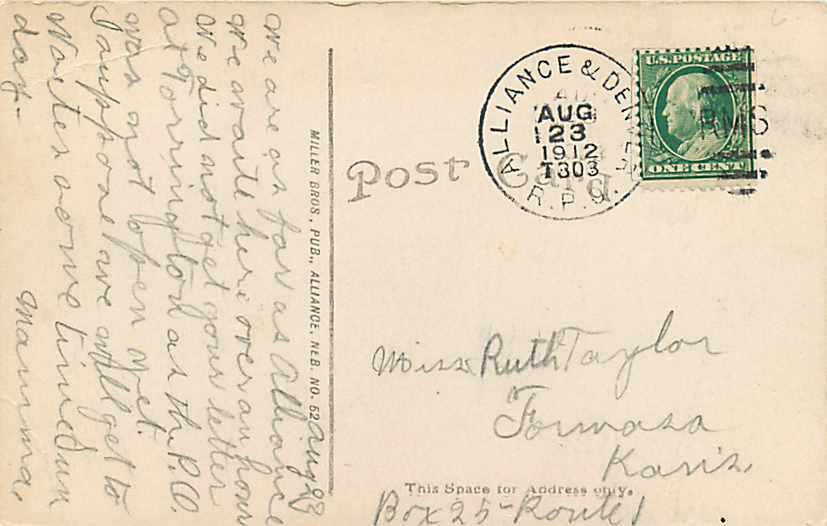 Aug 23
We are as far as Alliance
We waite here over an hour
We did not get your letter
at Torrington as the P.O.
was not open yet.
I suppose we will get to
some time Sun
day-
Mamma.
MILLER BROS., PUB., ALLIANCE, NEB. NO. 52
Post Card
ALLIANCE & DENVER
AUG
23
1912
T303
R.P.O.
U.S. POSTAGE
ONE CENT
RMS
Miss Ruth Taylor
Formosa
Kans.
This Space for Address only.
Box 25 - Route 1